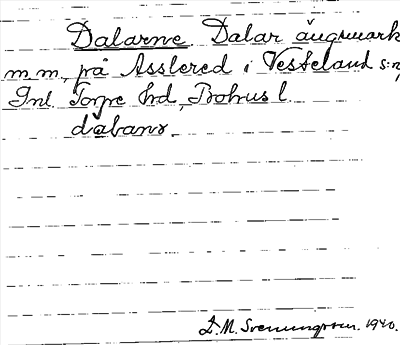 Dalarne Dalar ängsmark
m.m., på Asslered i Vesteland s:n,
Inl. Torpe hd, Bohus l.
dàbanr.
S. M. Svenungsson. 1940.